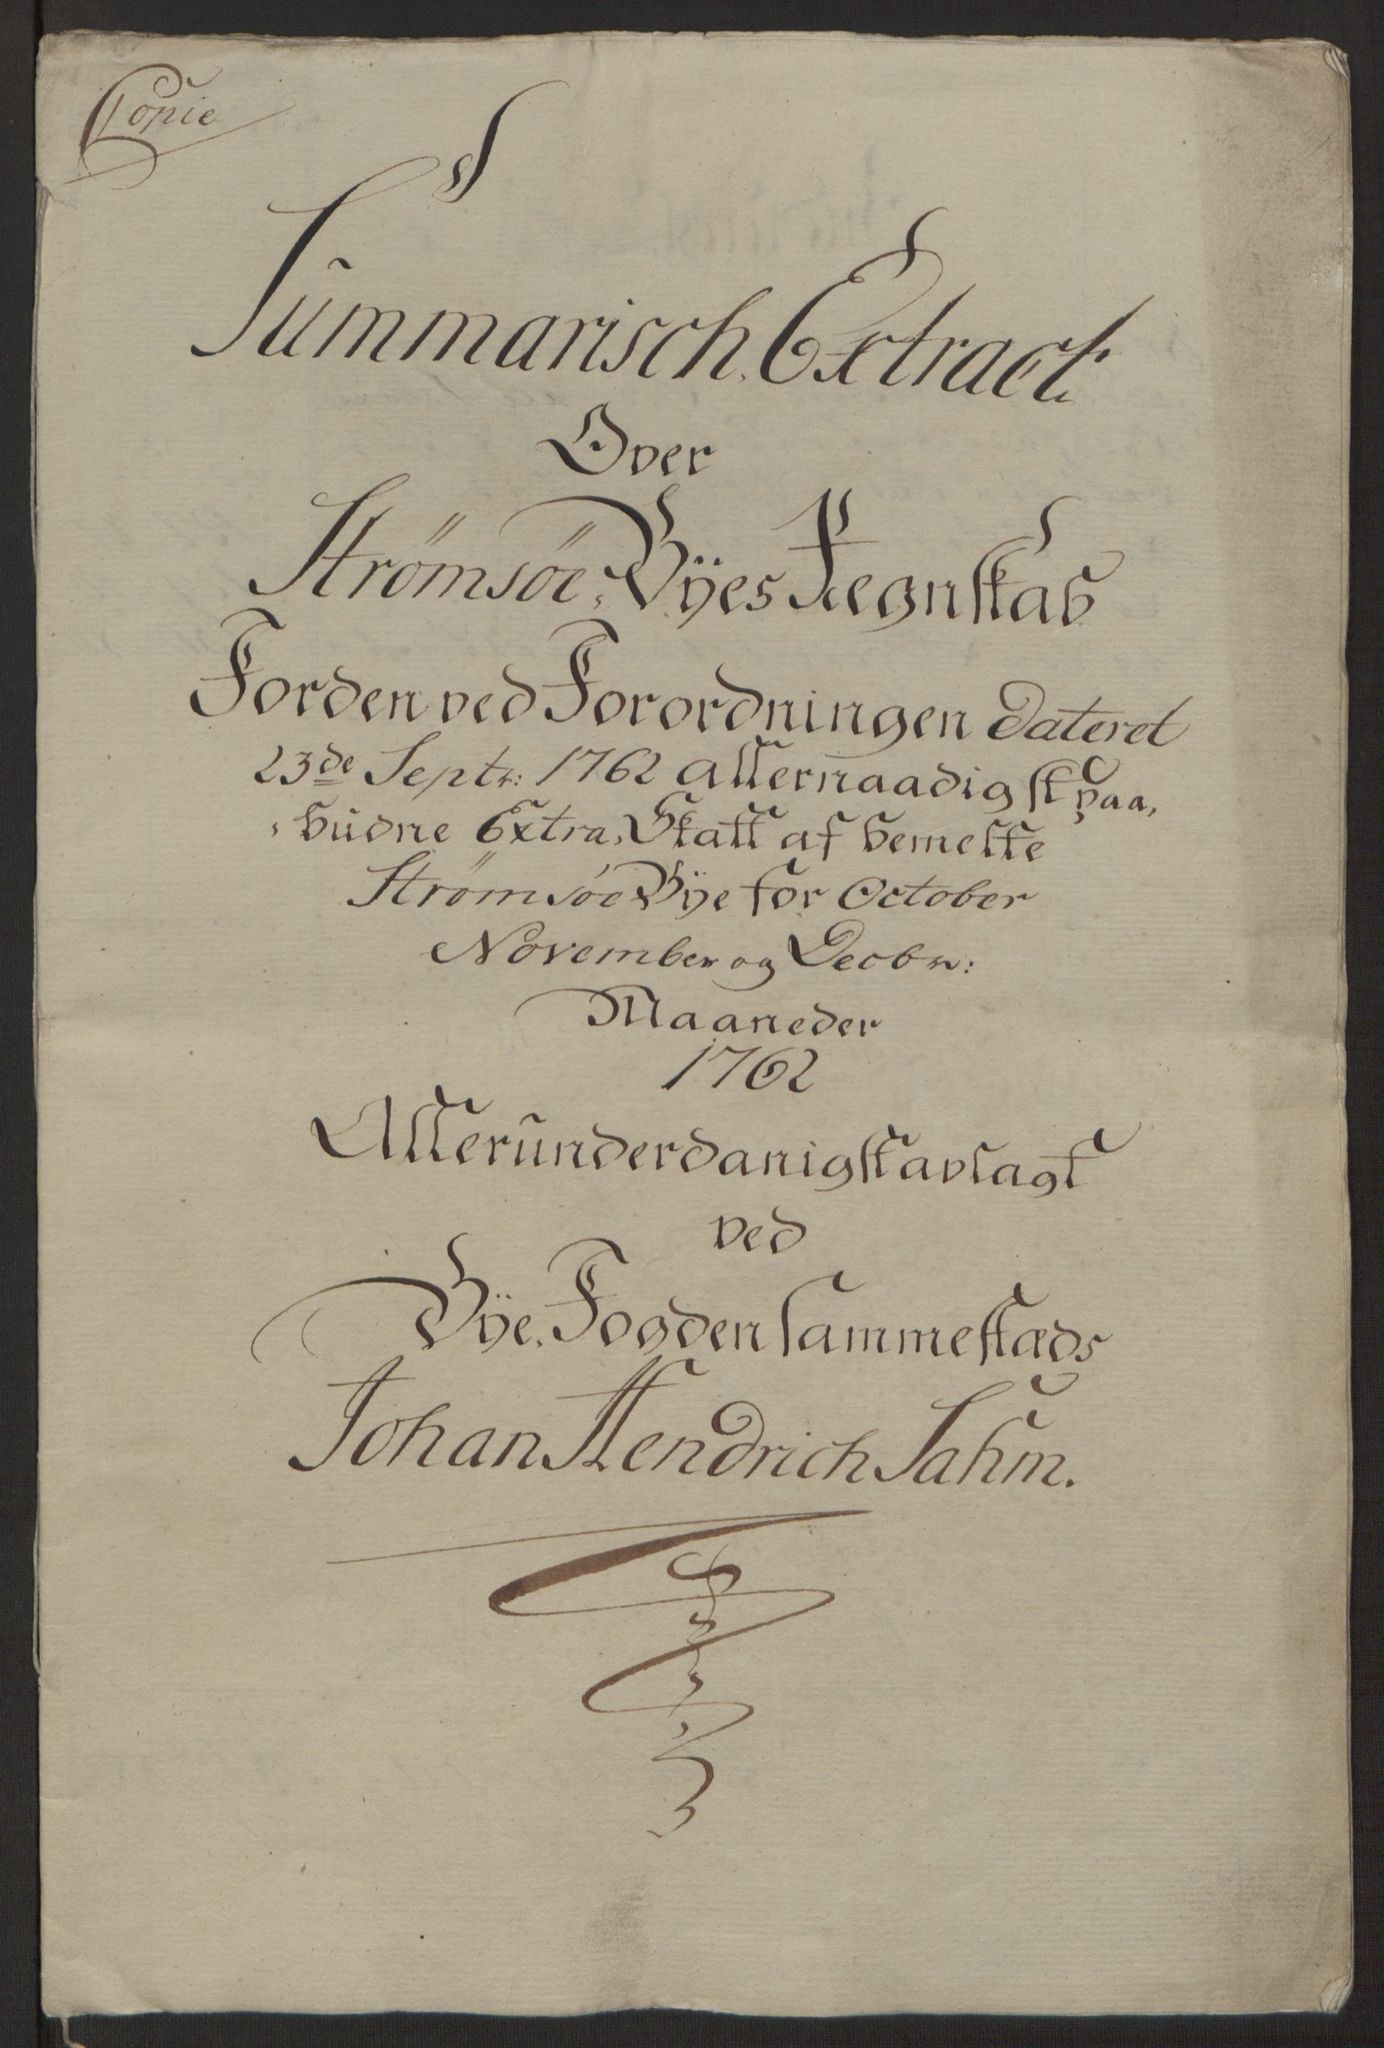 Copie
Summarisch Extract
Over
Strømsøe Byes Regnskab
For den ved Forordningen dateret
23de Septr: 1762 allernaadigst paa,
,budne Extra, Skatt af bemelte
Strømsøe Bye for October
November og Decbr:
Maaneder
1762
Allerunderdanigst avlagt
ved
Bye, Fogden sammestæds
Johan Hendrich Sahm.